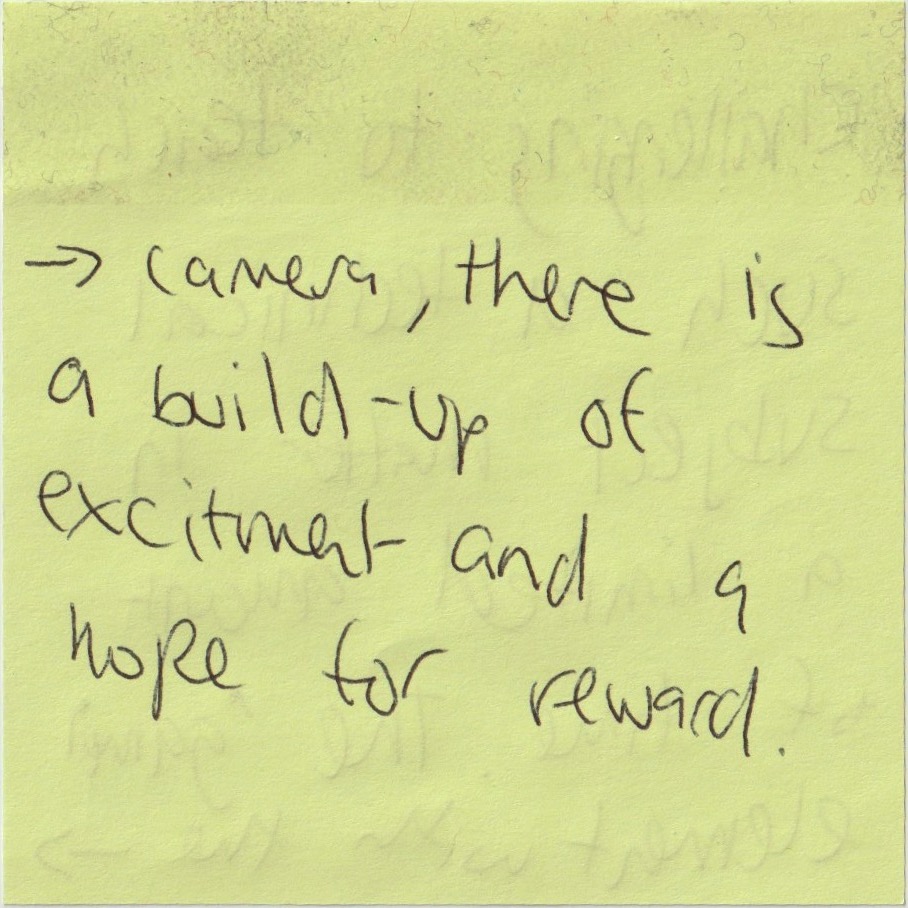 → camera, there is
a build-up of
excitment and a
hope for reward.